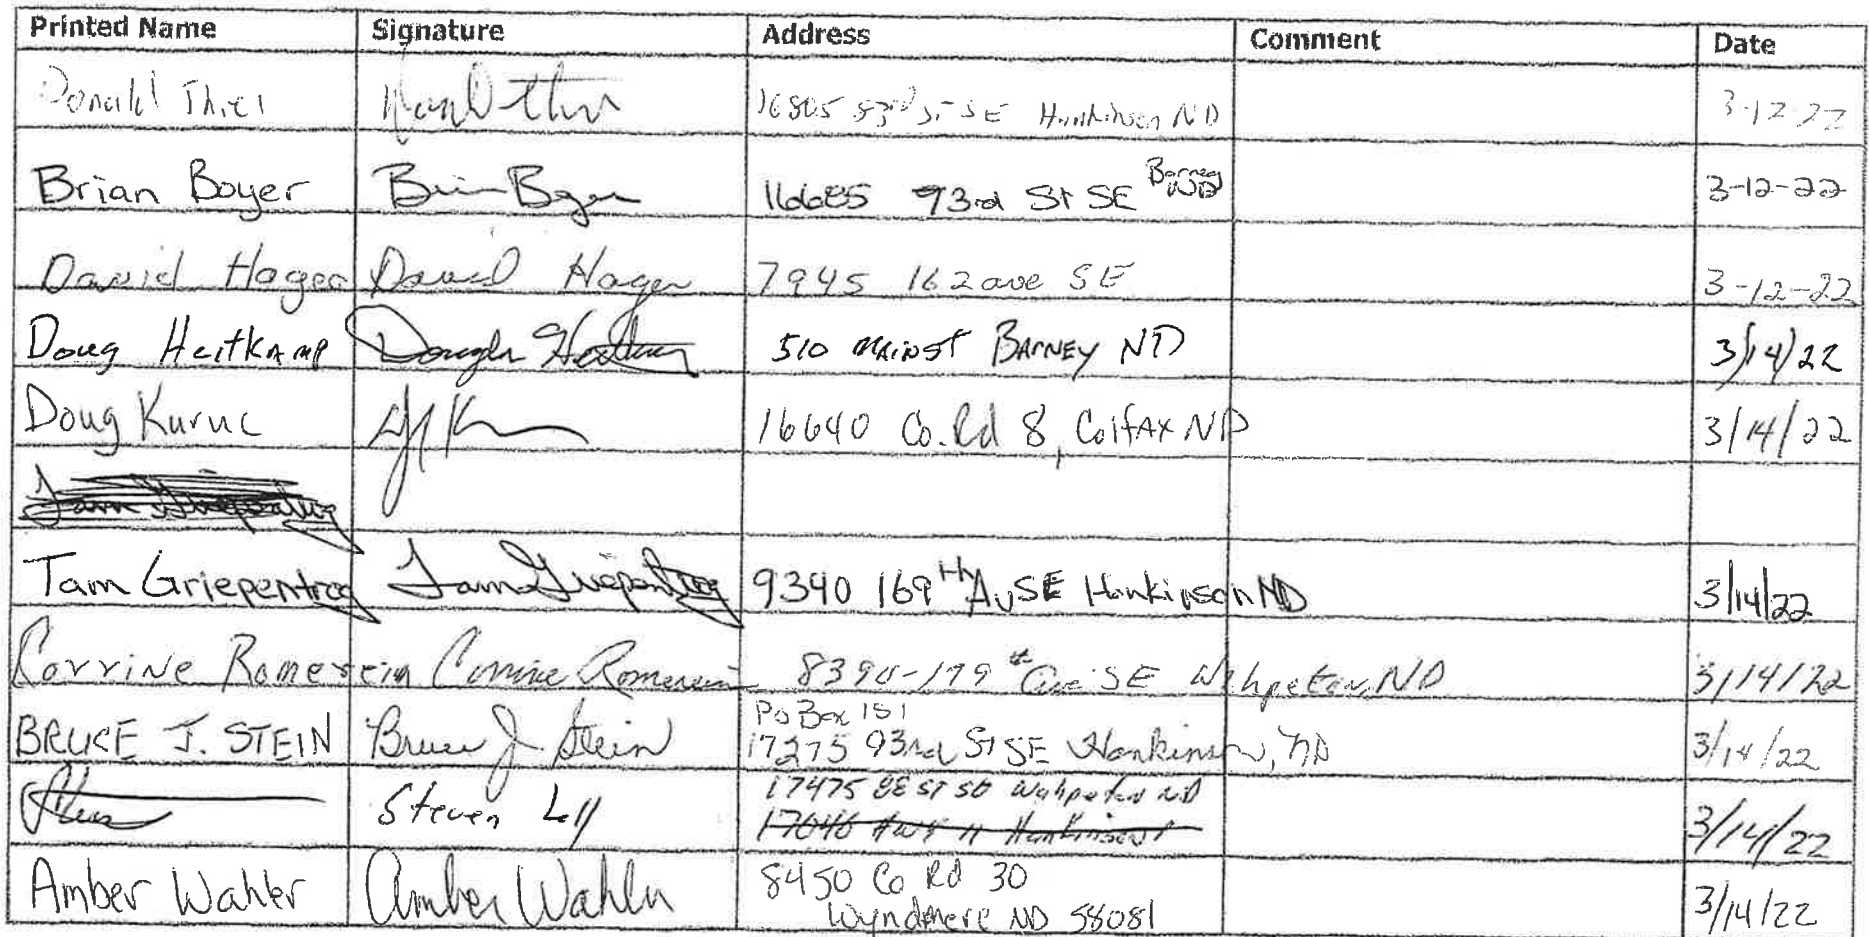 Printed Name Signature Address Comment Date
Donald Thiel 16805 83rd St SE Hankinson ND 3-12-22
Brian Boyer Brian Boyer 16685 93rd St SE Barney ND 3-12-22
David Hager David Hager 7945 162 ave SE 3-12-22
Doug Heitkamp Douglas Heitkamp 510 Main St Barney ND 3/14/22
Doug Kuruc 16640 Co. Rd 8, Colfax ND 3/14/22
Tam Griepentrog
Tam Griepentrog Tam Griepentrog 9340 169th Av SE Hankinson ND 3/14/22
Corrine Romerein Corrine Romerein 8390-179th Ave SE Wahpeton, ND 3/14/22
PO Box 151
BRUCE J. STEIN Bruce J Stein 17275 93rd St SE Hankinson, ND 3/14/22
17475 88 ST SE Wahpeton ND
Steven 17046 Hwy 11 Hankinson 3/14/22
8450 Co Rd 30
Amber Wahler Amber Wahler Wyndmere ND 58081 3/14/22